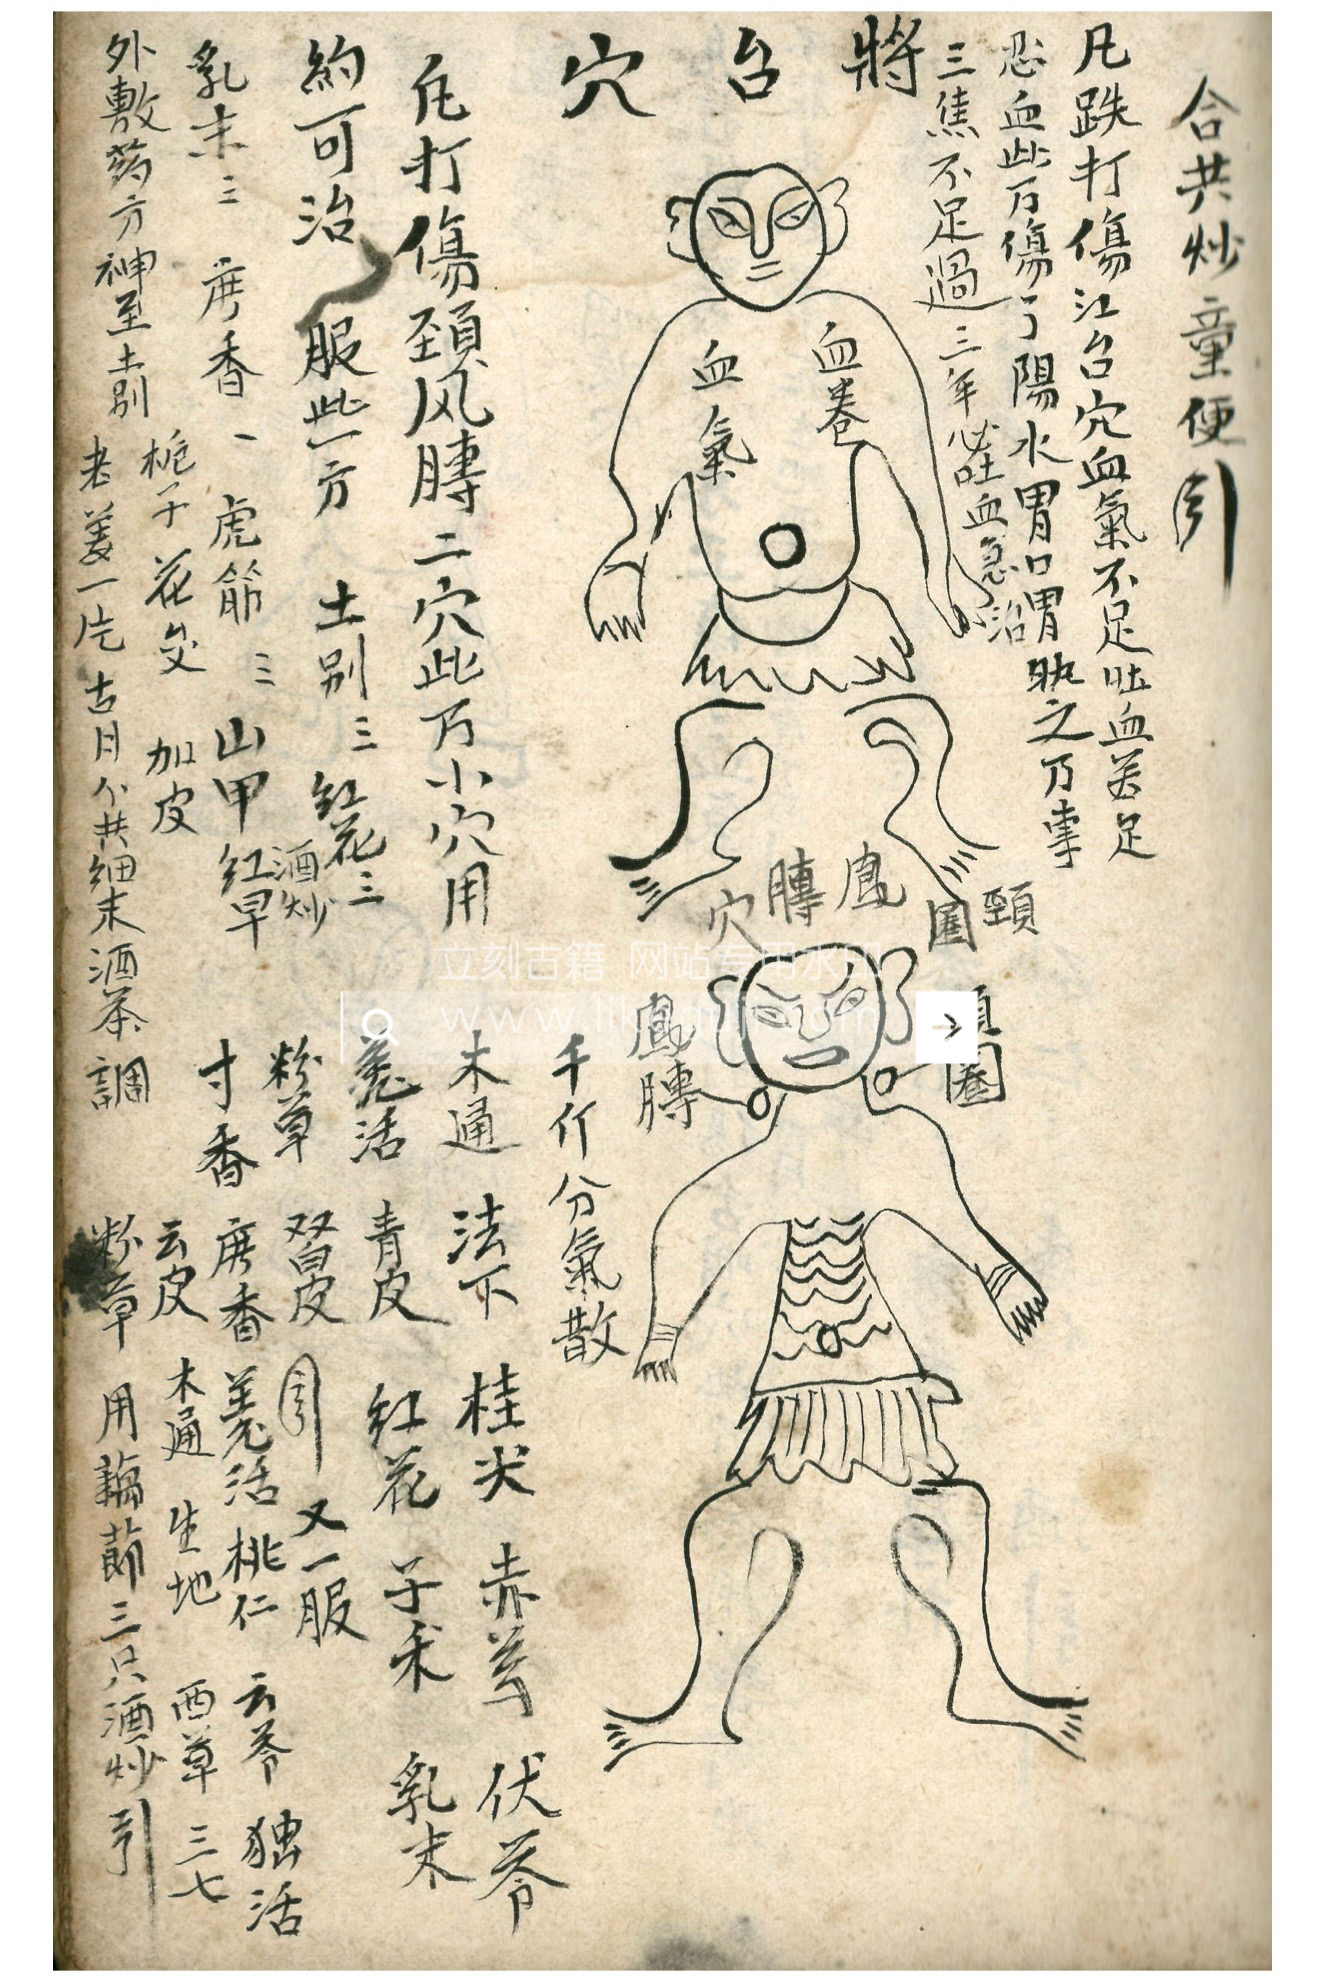 合共炒童便引
凡跌打傷江台穴血氣不足吐血若足
忍血此乃傷了陽水胃口胃执之乃事
三焦不足過三年必吐血急治
將台穴
血卷
血氣
頸圈
鳳膊穴
圈
鳳膊
凡打傷頸风膊二穴此乃小穴用
約可治 服此一方 土別三 紅花三 酒炒
乳末三 麝香一 虎節三 山甲 紅早
梔子 花文 加皮
外敷药方神至土別 老姜一片 古月 共細末酒茶調
千斤分氣散
木通 法下 桂尖 赤芍 伏苓
羗活 青皮 紅花 子禾 乳末
粉草 双白皮 引 又一服
寸香 麝香 羗活 桃仁 云苓 独活
云皮 木通 生地 西草 三七
粉草 用藕節三只酒炒引
立刻古籍 网站专用水印